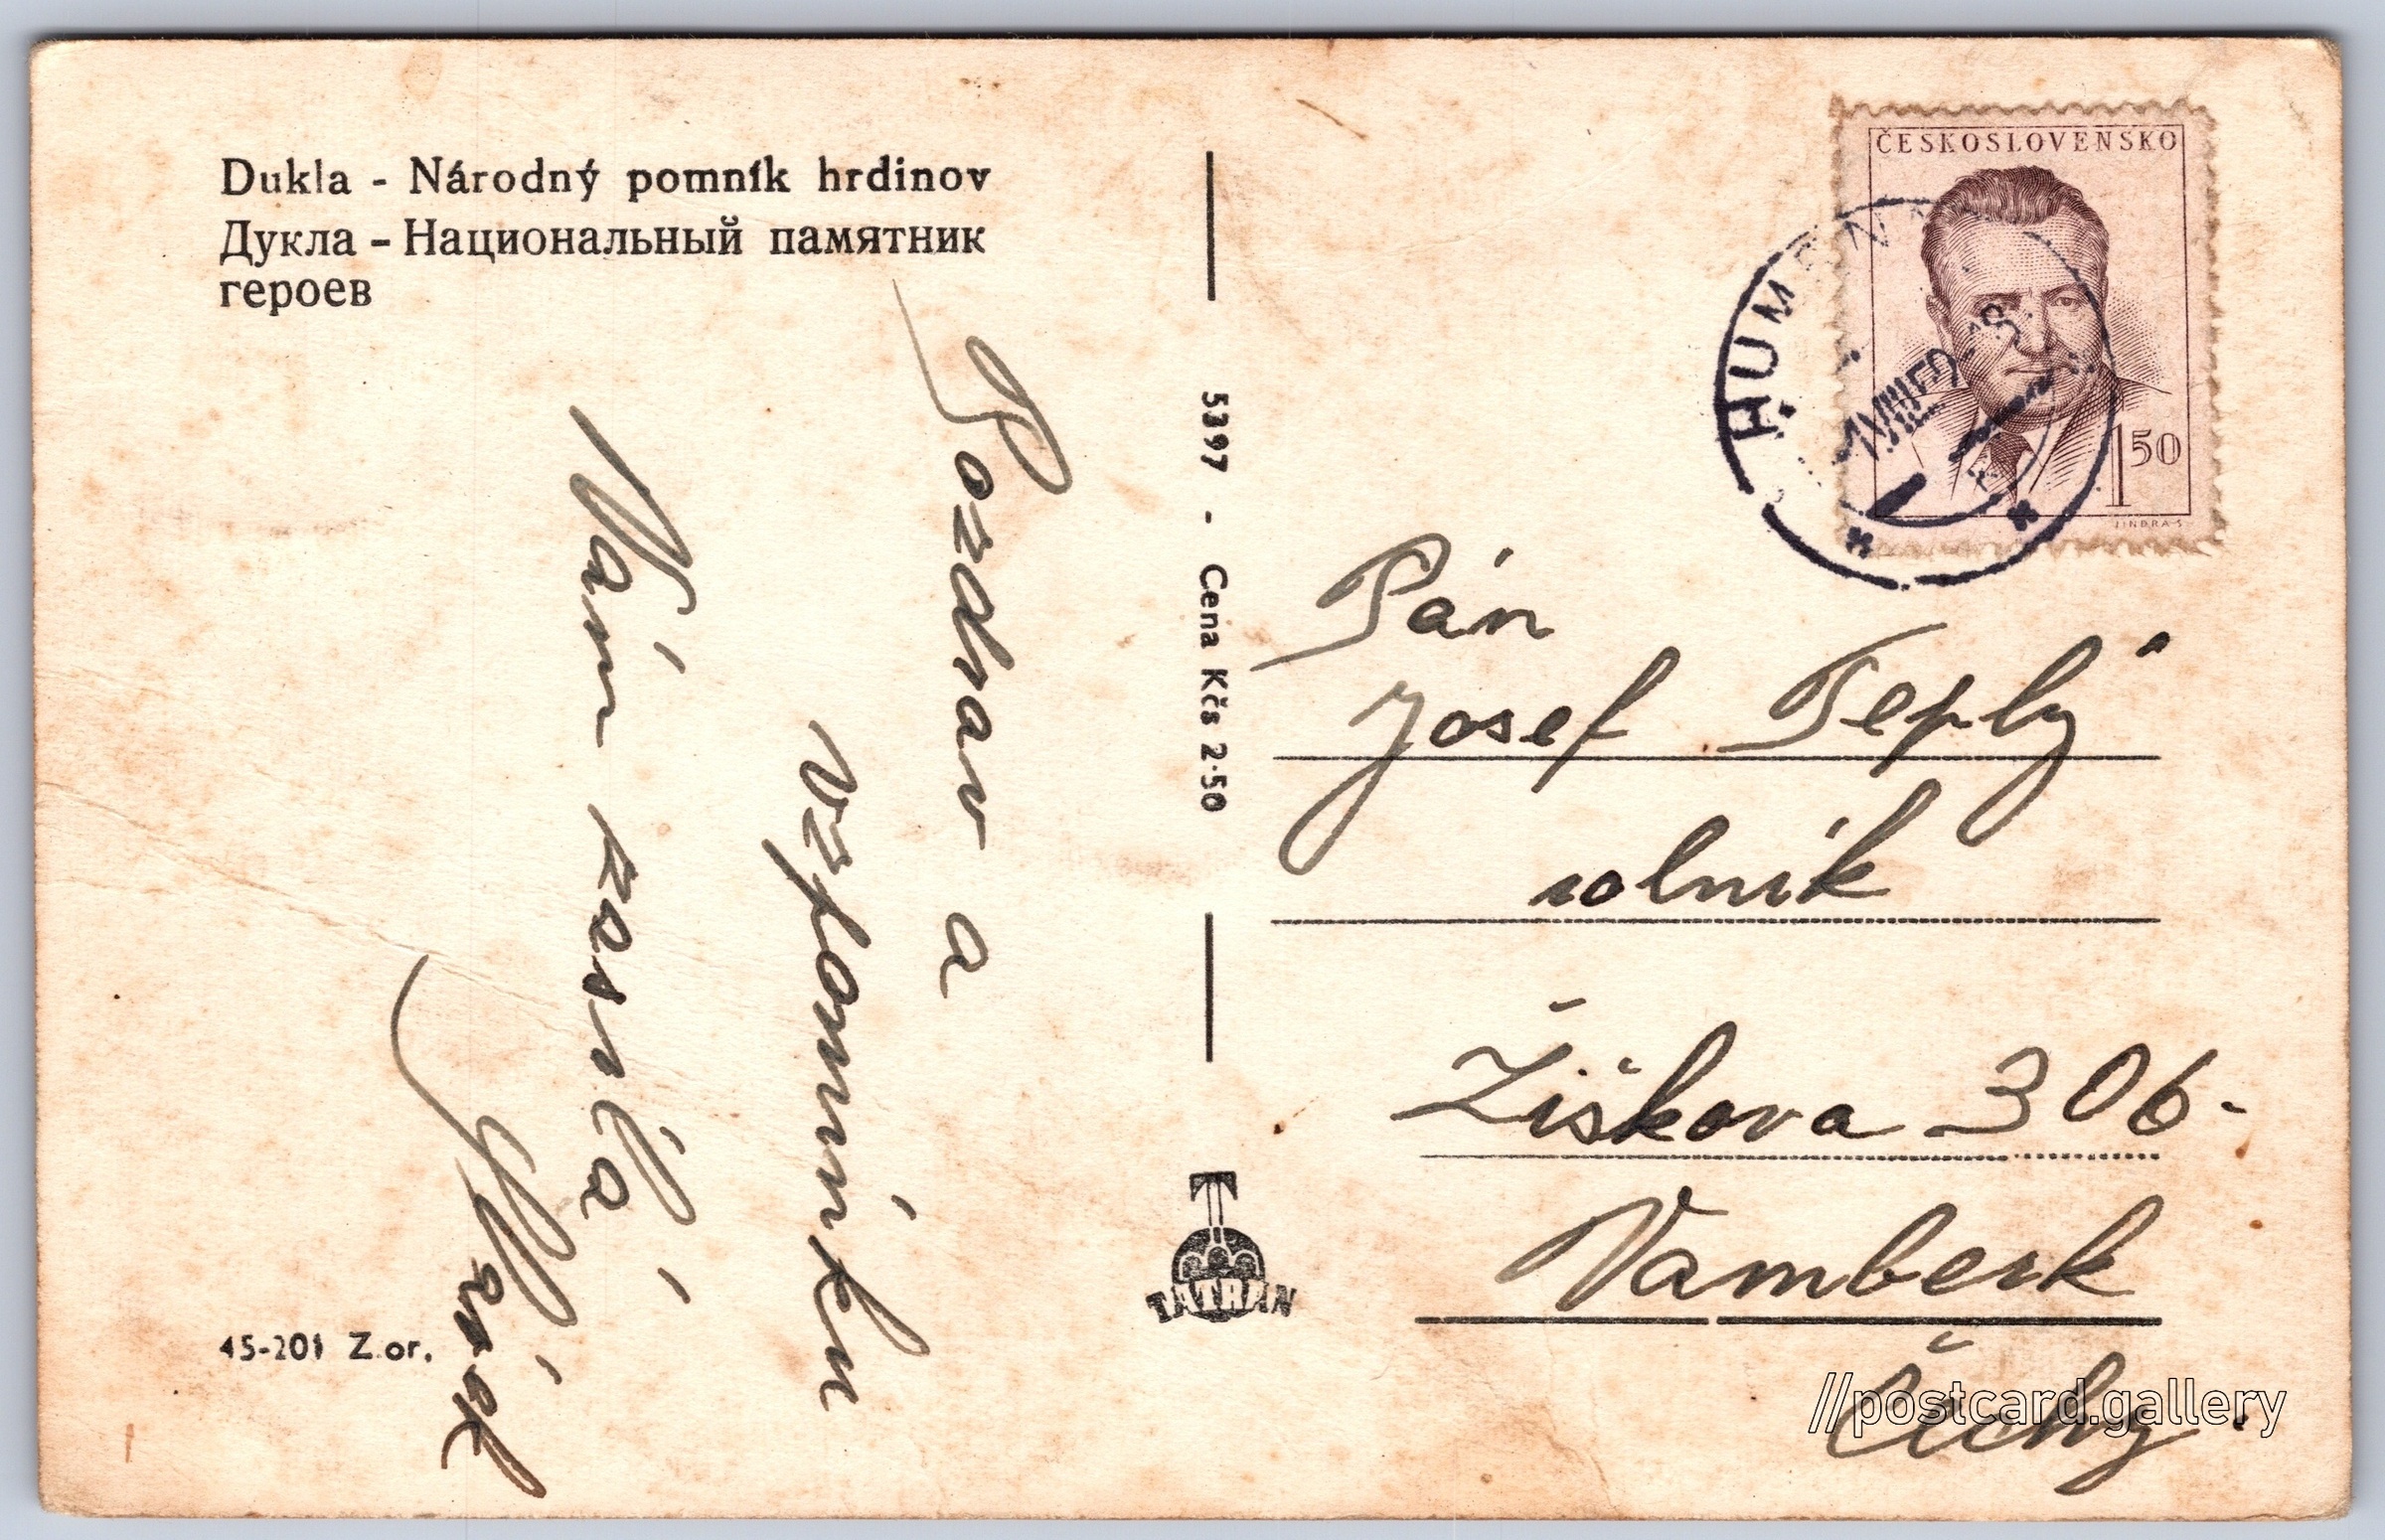 Dukla - Národný pomník hrdinov
Дукла – Национальный памятник
героев
Pozdrav a
vzpomínku
Vám posílá
45-201 Z.or.
5397 - Cena Kčs 2·50
TATRAN
ČESKOSLOVENSKO
1 50
JINDRA S
HUMENN
Pán
Josef Teplý
rolník
Žižkova 306-
Vamberk
Čechy.
//postcard.gallery